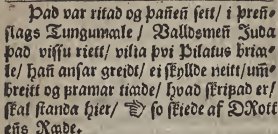 Þad var ritad og þan̄en ſett/ i þren̄
ſlags Tungumæle / Valldsmen̄ Juda
þad viſſu riett/ vilia þvi Pilatus briæ⸗
le/ han̄ anſar greidt/ ei ſkyllde neitt/um⸗
breitt og þramar tiæde/ hvad ſkriþad er/
ſkal ſtanda hier/ ☞ ſo ſkiede af DRott
en̄s Ræde.